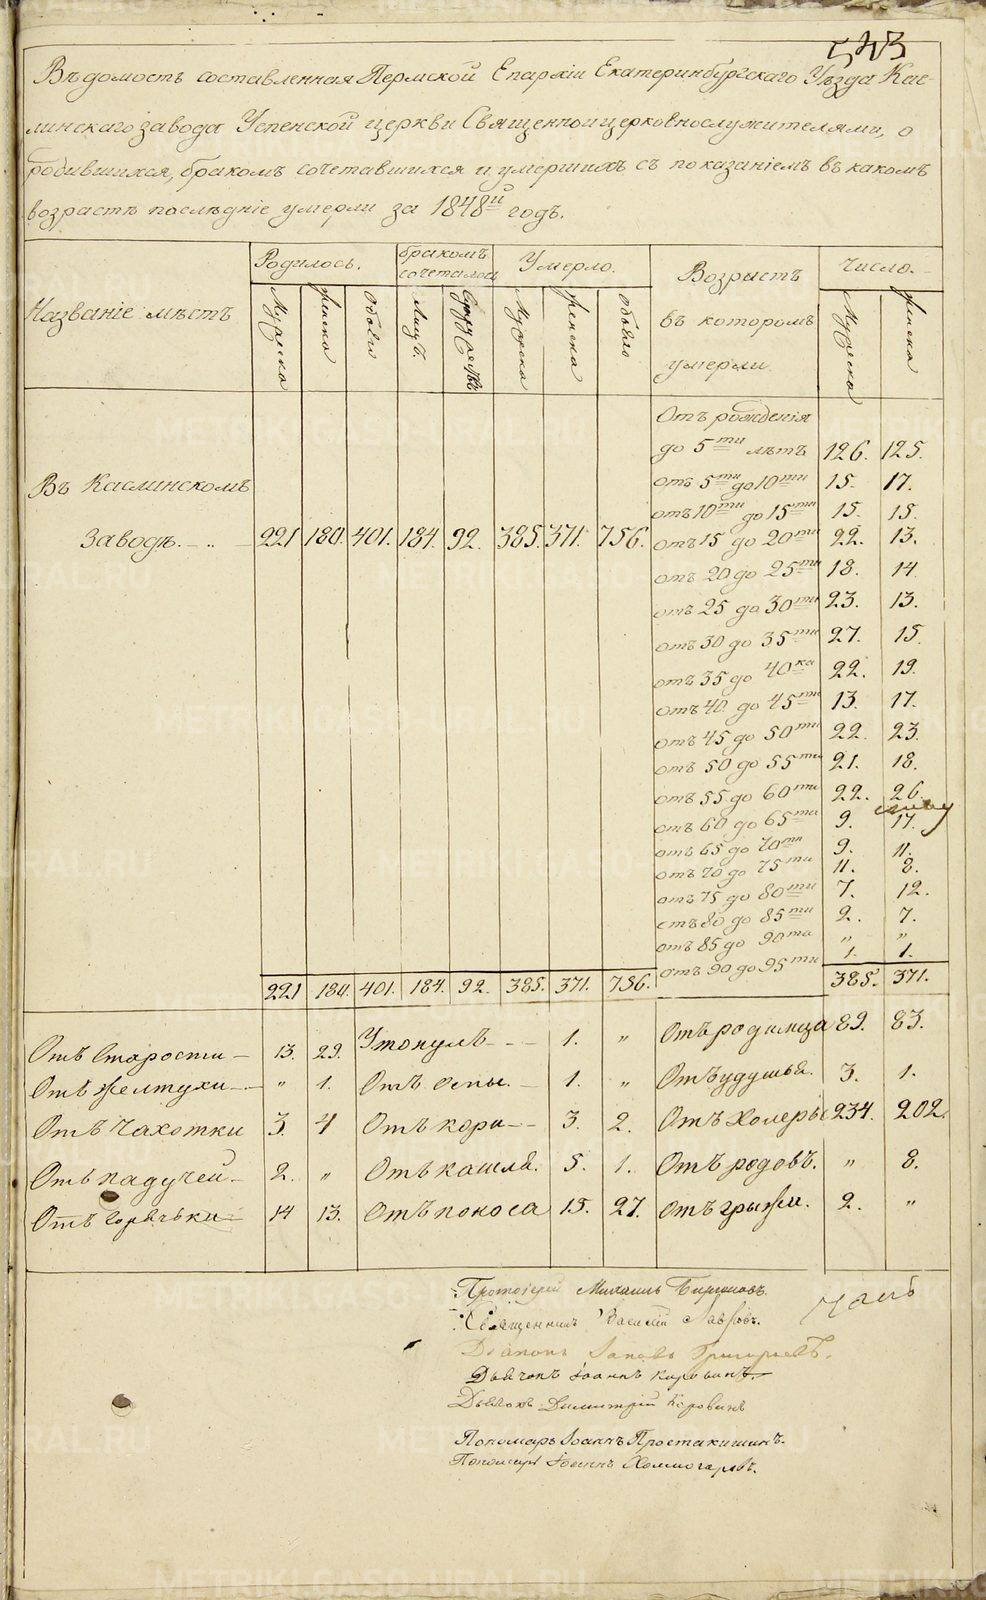 543
Вѣдомость составленная Пермской Епархіи Екатеринбургскаго Уѣзда Кас-
линскаго завода Успенской церкви Священноицерковнослужителями, о
родившихся, бракомъ сочетавшихся и умершихъ съ показаніемъ въ какомъ
возрастѣ послѣдніе умерли за 1848й годъ.
Названіе мѣстъ
Родилось.
Мужеска
Женска
Обоего
бракомъ сочеталось
Лицъ.
Супружествъ
Умерло.
Мужеска
Женска
Обоего
Возрастъ
въ которомъ
умерли.
Число.
Мужеска
Женска
Въ Каслинскомъ
Заводѣ. 221 180. 401. 184. 92. 385. 371. 756.
Отъ рожденія
до 5ти лѣтъ 126. 125.
отъ 5ти до 10ти 15. 17.
отъ 10ти до 15ти 15. 15.
отъ 15 до 20ти 22. 13.
отъ 20 до 25ти 18. 14.
отъ 25 до 30ти 23. 13.
отъ 30 до 35ти 27. 15.
отъ 35 до 40ка 22. 19.
отъ 40 до 45ти 13. 17.
отъ 45 до 50ти 22. 23.
отъ 50 до 55ти 21. 18.
отъ 55 до 60ти 22. 26.
отъ 60 до 65ти 9. 17.
отъ 65 до 70ти 9. 11.
отъ 70 до 75ти 11. 8.
отъ 75 до 80ти 7. 12.
отъ 80 до 85ти 2. 7.
отъ 85 до 90та „ „
отъ 90 до 95ти 1. 1.
221 180. 401. 184. 92. 385. 371. 756. 385. 371.
Отъ Старости 13. 29. Утонулъ 1. „ Отъ родимца 89. 83.
Отъ желтухи „ 1. Отъ оспы. 1. „ Отъ удушья. 3. 1.
Отъ Чахотки 3. 4 Отъ кори 3. 2. Отъ Холеры 234. 202.
Отъ падучей 2. „ Отъ кашля. 5. 1. Отъ родовъ. „ 8.
Отъ горячьки 14 13. Отъ поноса 15. 27. Отъ грыжи. 2. „
Протоіерей Михаилъ Бирюковъ.
Священникъ Василій Лавровъ.
Діаконъ Григорьевъ.
Дьячокъ Іоаннъ Коровинъ
Дьячокъ Димитрій Коровинъ
Пономарь Іоаннъ Простакишинъ.
Пономарь Іоаннъ Холмогоровъ.
METRIKI.GASO-URAL.RU